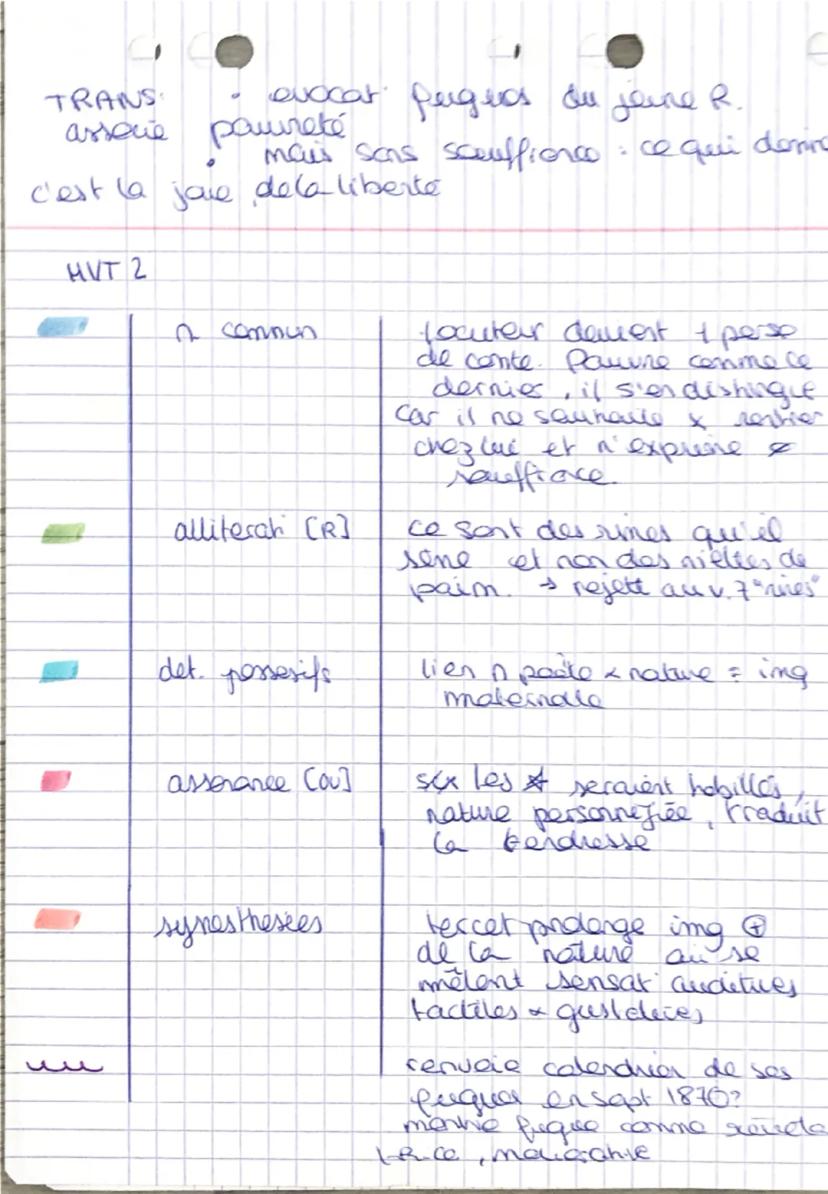 TRANS: • evocat° fugues du jeune R.
associe pauvreté
• mais sans souffrance : ce qui domine
c'est la joie de la liberté
MVT 2
n commun
locuteur devient + perso
de conte. Pauvre comme ce
dernier, il s'en distingue
car il ne souhaite x rentrer
chez lui et n'exprime
souffrance.
alliterat° [R]
ce sont des rimes qu'il
sème et non des miettes de
pain. → rejeté au v.7 "rimes"
det. possessifs
lien n poète & nature = img
maternelle
assonance [ou]
les seraient habillés,
nature personnifiée, traduit
la tendresse
synesthésies
tercet prolonge img ⊕
de la nature où se
mêlent sensat° auditives
tactiles & gustatives
renvoie calendrier de ses
fugues en sept 1870?
fugue comme